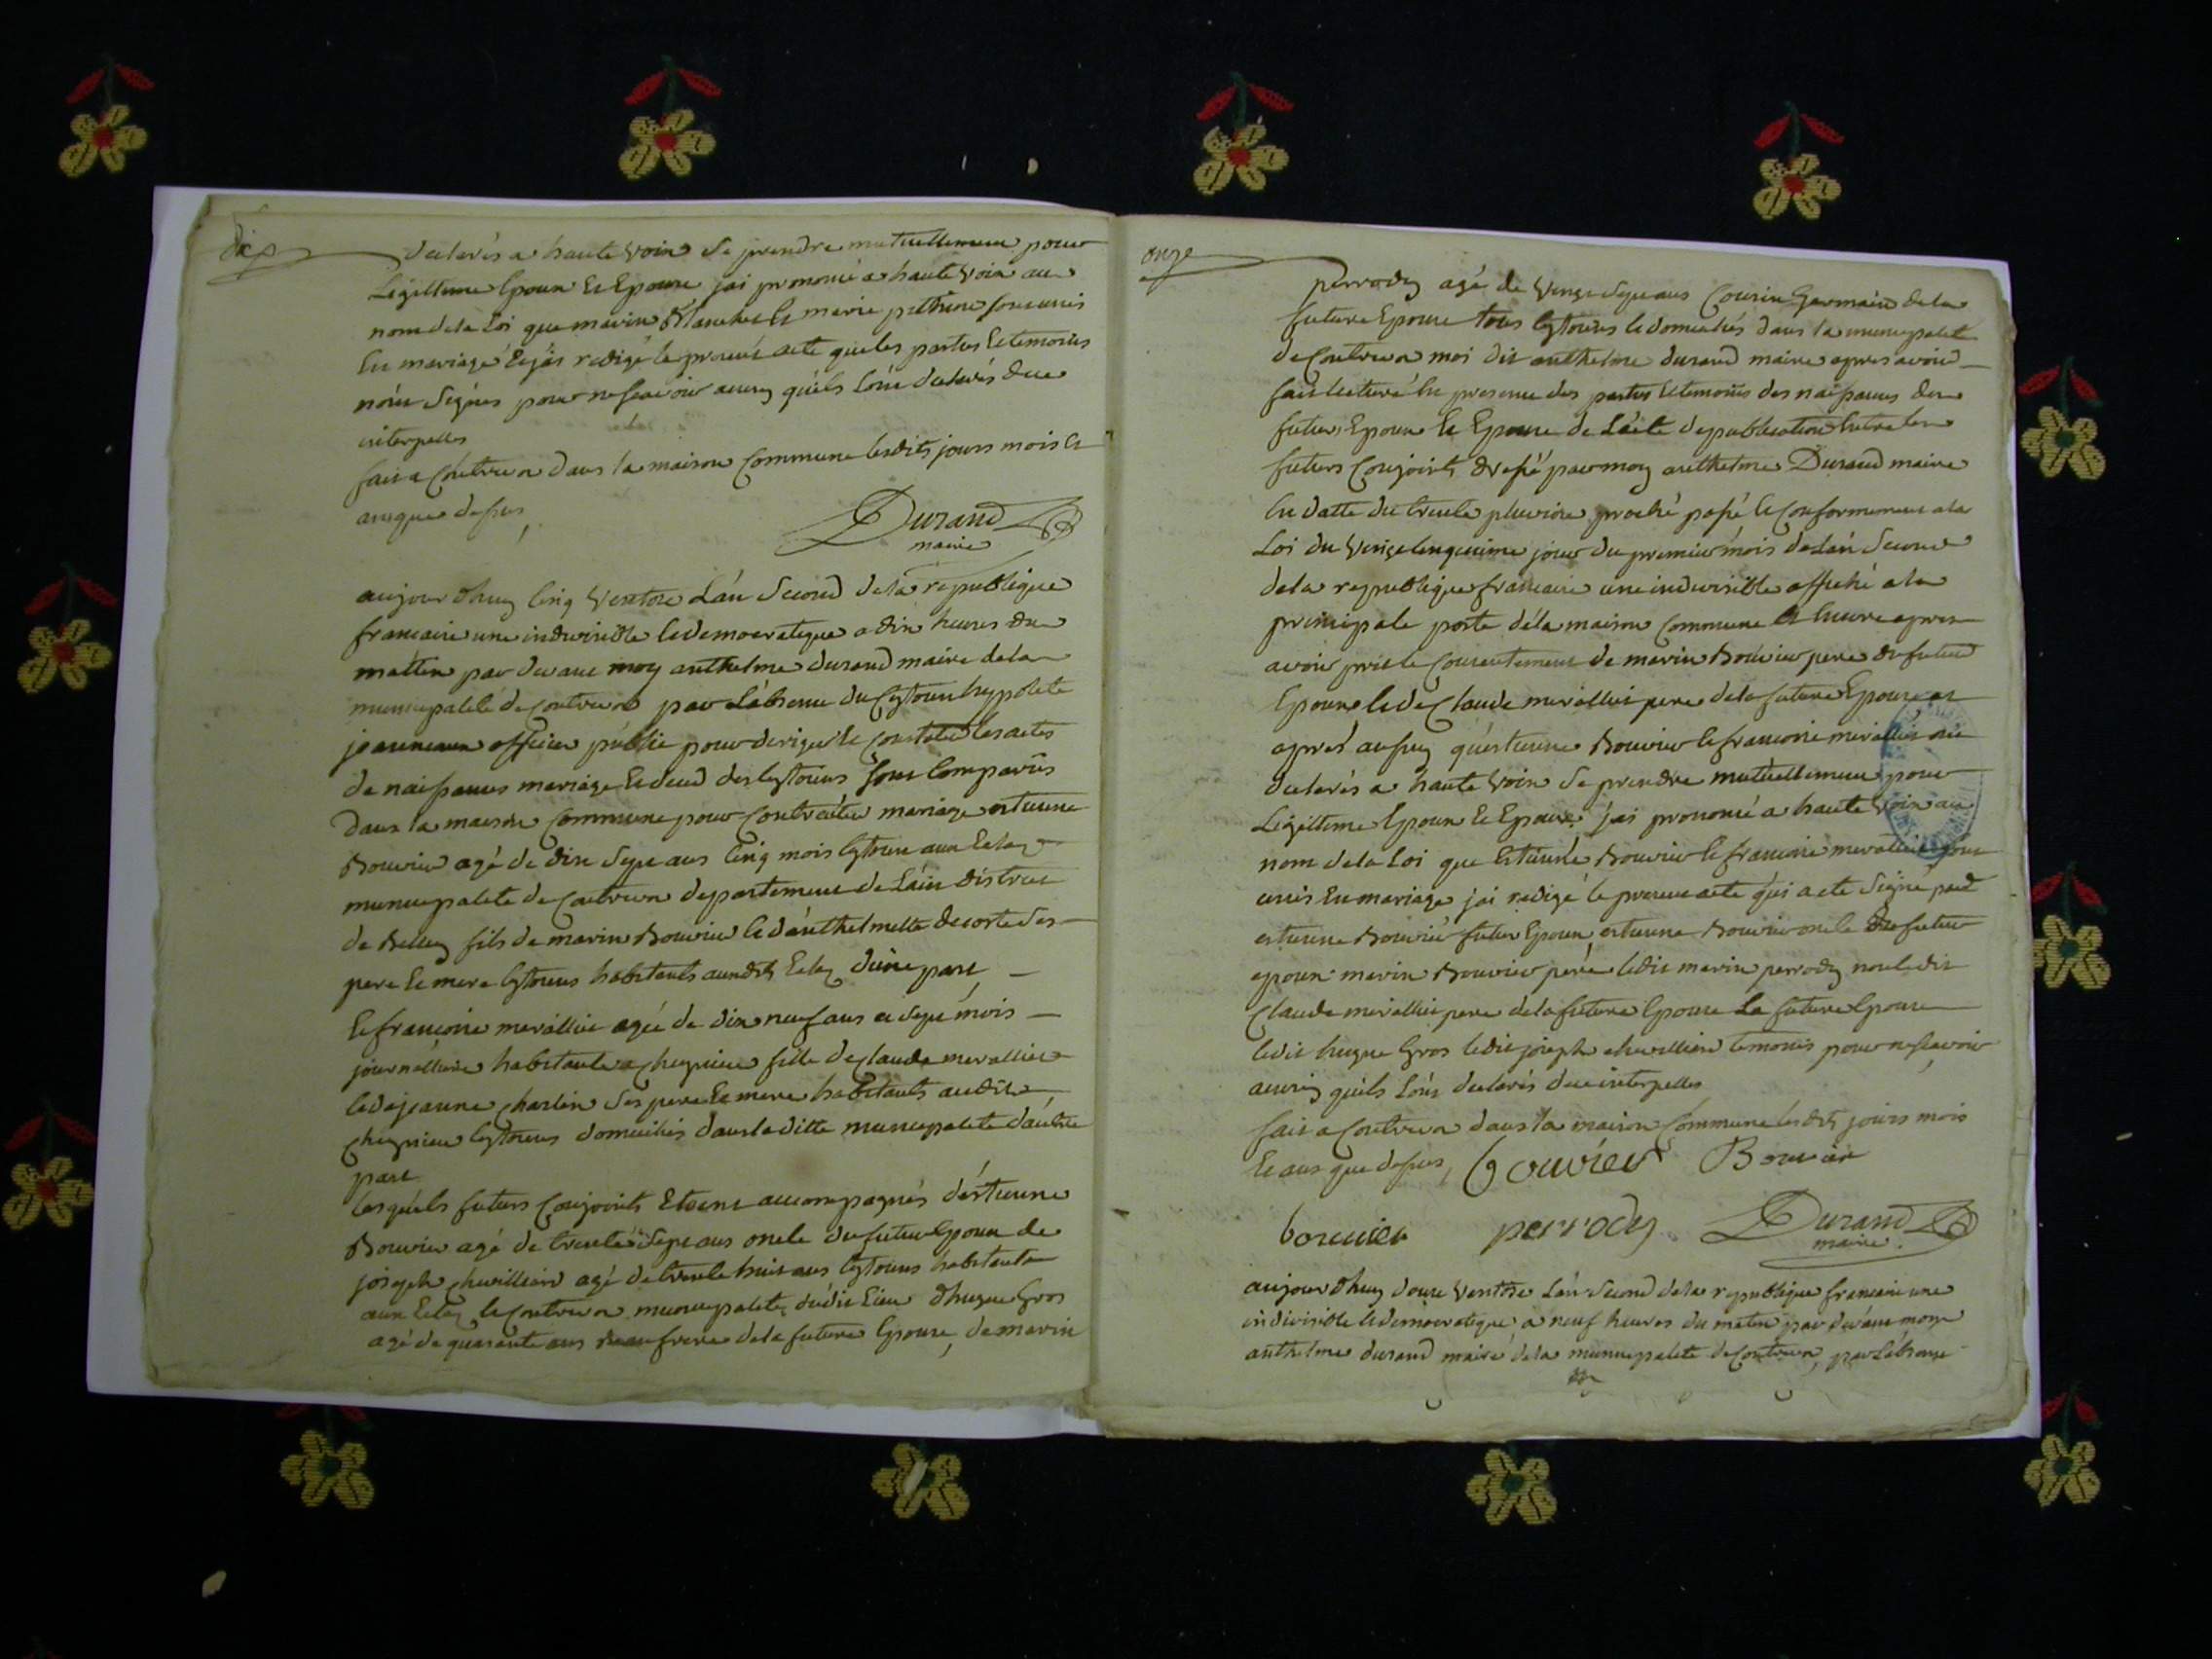 dix
declarés a haute voix de prendre mutuellement pour
Legittime Epoux et Epouse jai prononcé a haute voix au
nom dela Loi que marin et marie sont unis
En mariage Et jai redigé le present acte que les parties et temoins
n'ont Signés pour ne scavoir ainsy quils L'ont declarés due
interpelles
fait a Contrevoz dans la maison Commune lesdits jours mois et
an que dessus
Durand
maire
aujourdhuy Cinq Ventose L'an Second dela republique
francaise une indivisible et democratique a dix heures du
mattin par devant moy anthelme durand maire dela
municipalité de Contrevoz par L'absence du Cytoyen hypolite
jeannenaux officier public pour deriger et Constater les actes
de naissances mariage Et deced des Cytoiens sont Comparus
dans la maison Commune pour Contracter mariage estienne
Bouvier agé de dix Sept ans Cinq mois Cytoien aux Estay
municipalité de Contrevoz departement de L'ain district
de Belley fils de marin Bouvier et d'anthelmette decorte ses
pere Et mere Cytoiens habitants auxdits Estay d'une part
Et francoise merallier agée de dix neuf ans et Sept mois
journalliere habitante a Chegnieu fille de Claude merallier
et de jeanne Charlin Ses pere Et mere habitants audit
Chegnieu Cytoiens domiciliés dans laditte municipalité d'autre
part
Lesquels futurs Conjoints Etoient accompagnés d'estienne
Bouvier agé de trente Sept ans oncle du futur Epoux de
joseph Chevilliard agé de trente huit ans Cytoiens habitants
aux Estay et Contrevoz municipalité dudit Lieu d'hugue Gros
agé de quarante ans beaufrere dela future Epouse, de marin
onze
perrody agé de Vingt Sept ans Cousin Germain dela
future Epouse tous Cytoiens et domiciliés dans la municipalité
de Contrevoz moi dit anthelme durand maire apres avoir
fait lecture En presence des parties et temoins des naissances des
futurs Epoux Et Epouse de L'acte de publication Entre les
futurs Conjoints dressé par moy anthelme Durand maire
En datte du trente pluviose proché passé et Conformement a la
Loi du Vingt Cinquieme jour du premier mois de Lan Second
dela republique francaise une indivisible affiché a la
principale porte dela maison Commune Et Encore apres
avoir pris le Consentement de marin Bouvier pere du futur
Epoux et de Claude merallier pere dela future Epouse et
apres aussy qu'estienne Bouvier et francoise merallier ont
declarés a haute voix de prendre mutuellement pour
Legittime Epoux Et Epouse j'ai prononcé a haute voix au
nom dela Loi que Estienne Bouvier et francoise merallier sont
unis En mariage jai redigé le present acte qui a eté Signé par
estienne Bouvier futur Epoux estienne Bouvier oncle du futur
epoux marin Bouvier pere ledit marin perrody non ledit
Claude merallier pere dela future Epouse La future Epouse
ledit hugue Gros ledit joseph chevilliard temoins pour ne scavoir
ainsy quils L'ont declarés due interpelles
fait a Contrevoz dans la maison Commune lesdits jours mois
Et ans que dessus, bouvier Bouvier
bouvier perrody Durand
maire
aujourdhuy douze Ventose L'an Second dela republique francaise une
indivisible et democratique a neuf heures du matin par devant moy
anthelme durand maire dela municipalité de Contrevoz, par L'absence